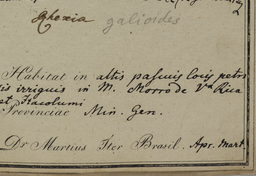 galioides
Habitat in altis pascuis locis petro
sis irriguis in M. Morro de Va Rica
et Itacolumi
Provinciae Min. Gen.
Dr Martius Iter Brasil. Apr. Mart.